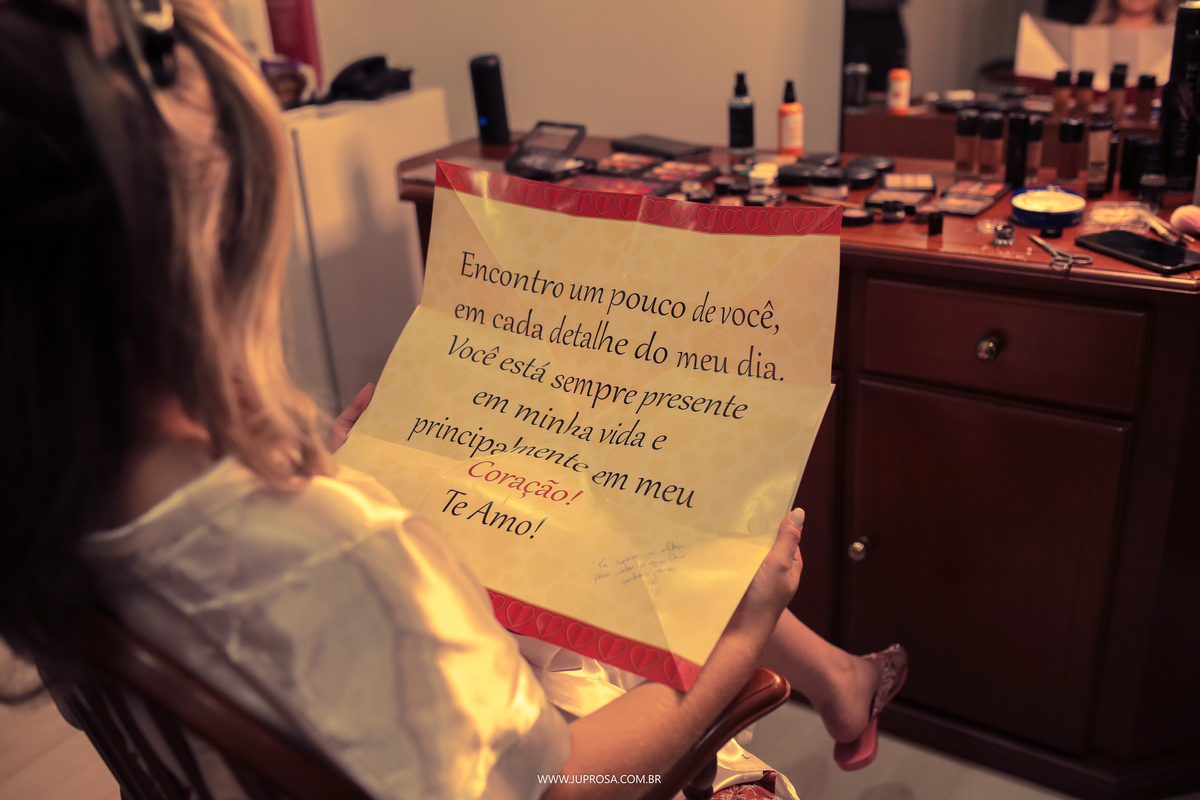 Encontro um pouco de você,
em cada detalhe do meu dia.
Você está sempre presente
em minha vida e
principalmente em meu
Coração!
Te Amo!
WWW.JUPROSA.COM.BR